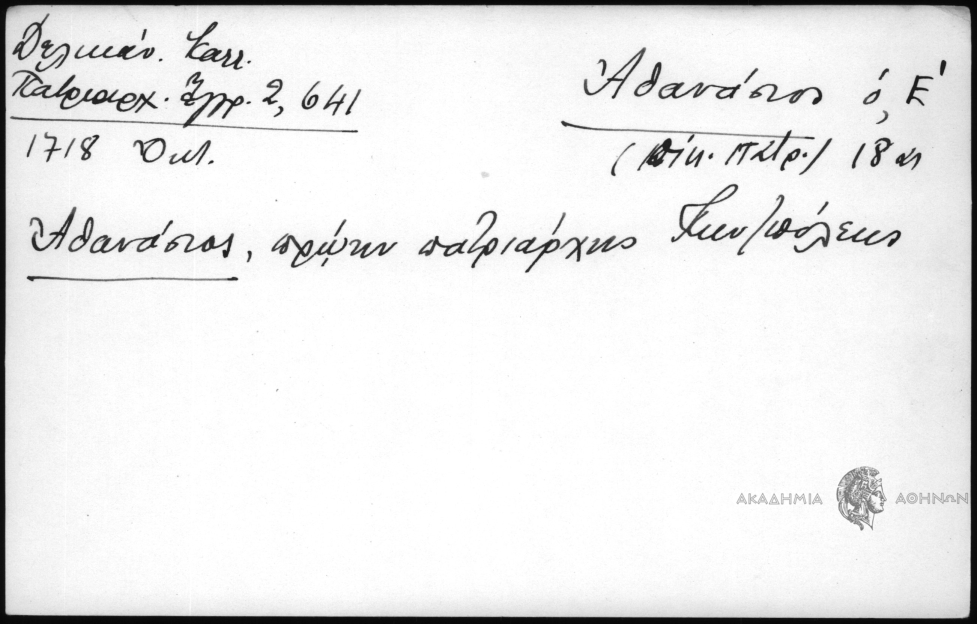 Δελικάν. Καλλ.
Πατριαρχ. Ἔγγρ. 2, 641
1718 Ὀκτ.
Ἀθανάσιος ὁ, Ε'
(Οἰκ. Πατρ.) 18 αι
Ἀθανάσιος, πρώην πατριάρχης Κων/πόλεως
ΑΚΑΔΗΜΙΑ ΑΘΗΝΩΝ